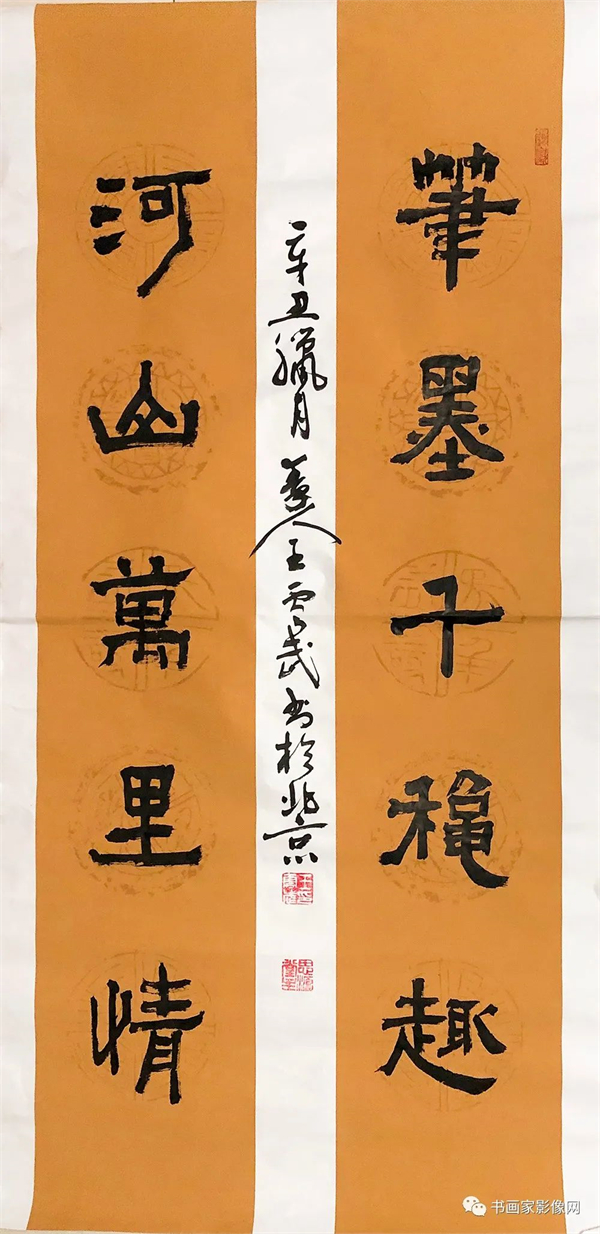 筆墨千穐趣
河山萬里情
辛丑臘月 人王雲武书於北京
书画家影像网